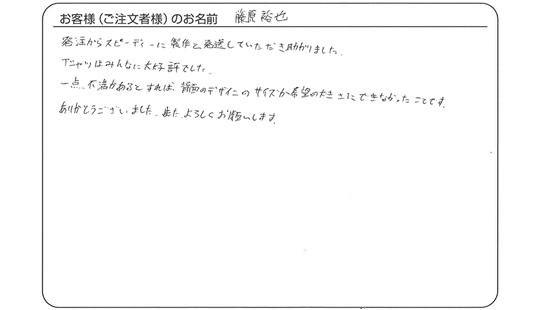 お客様（ご注文者様）のお名前 藤原 裕也
発注からスピーディーに製作と発送していただき助かりました。
Tシャツはみんなに大好評でした。
一点、不満があるとすれば、背面のデザインのサイズが希望の大きさにできなかったことです。
ありがとうございました。また、よろしくお願いします。